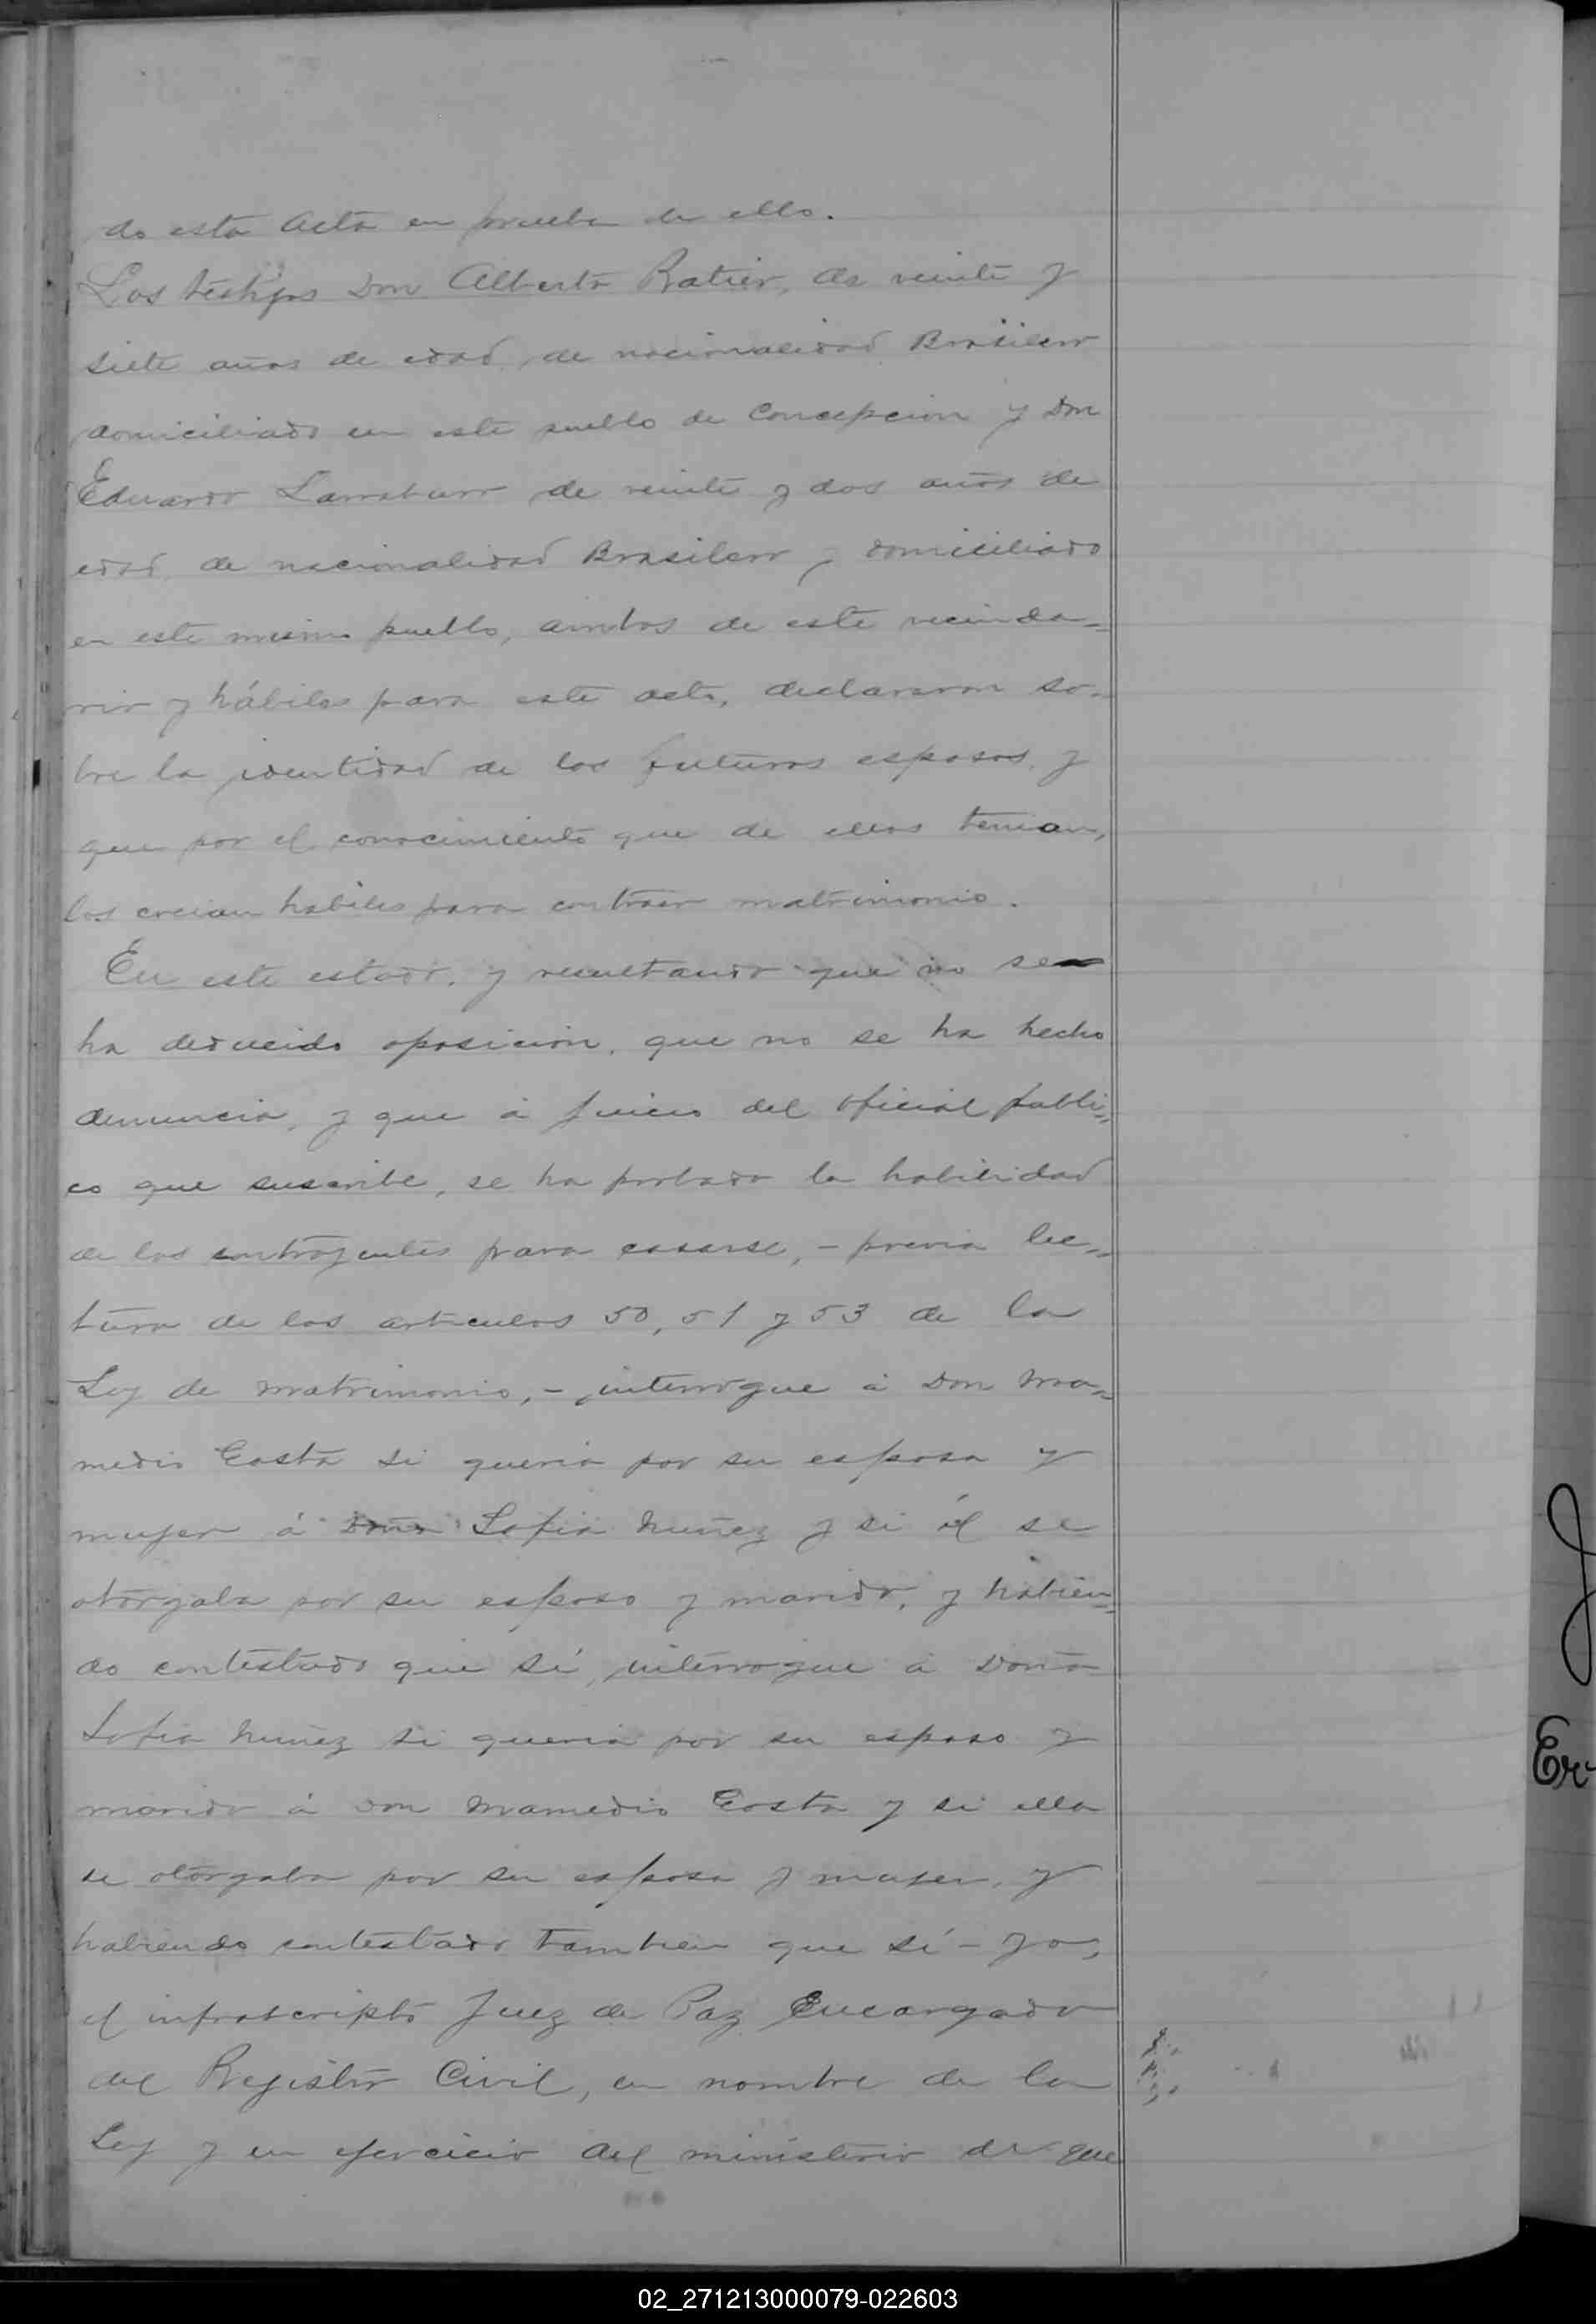 do esta Acta en prueba de ello.
Los testigos Don Alberto Ratier, de veinte y
siete años de edad, de nacionalidad Brasilero
domiciliado en este pueblo de Concepcion y Don
Eduardo de veinte y dos años de
edad, de nacionalidad Brasilero y domiciliado
en este mismo pueblo, ambos de este vecinda=
rio y hábiles para este acto, declararon so=
bre la identidad de los futuros esposos, y
que por el conocimiento que de ellos tenian,
los creian habiles para contraer matrimonio.
En este estado, y resultando que no se
ha deducido oposicion, que no se ha hecho
denuncia, y que á juicio del oficial públi=
co que suscribe, se ha probado la habilidad
de los contrayentes para casarse, - previa lec=
tura de los articulos 50, 51 y 53 de la
Ley de matrimonio, - interrogue á Don Ma=
medio Costa si queria por su esposa y
mujer á Doña Sofia Nuñez y si él se
otorgaba por su esposo y marido, y habien=
do contestado que sí, interrogue á Doña
Sofia Nuñez si queria por su esposo y
marido á Don Mamedio Costa y si ella
se otorgaba por su esposa y mujer, y
habiendo contestado tambien que sí - yo,
el infrascripto Juez de Paz Encargado
del Registro Civil, en nombre de la
Ley y en ejercicio del ministerio de que
Er
02_271213000079-022603